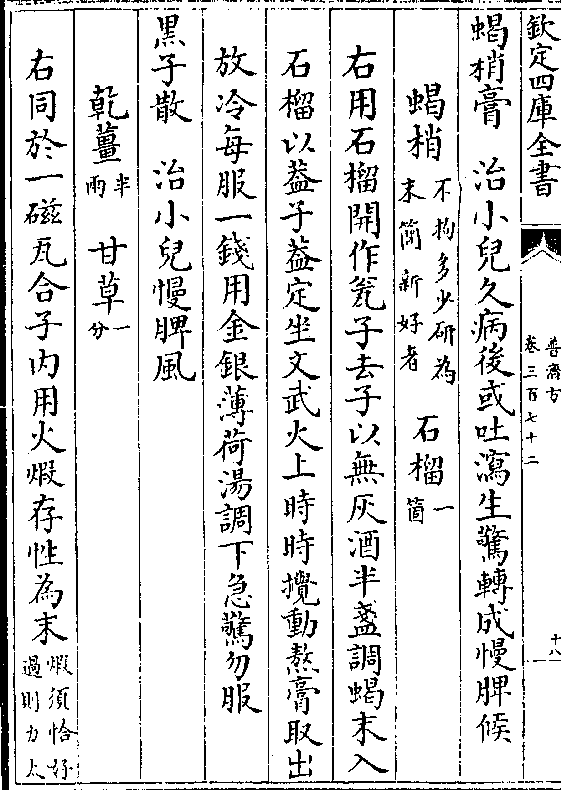 欽定四庫全書
普濟方
卷三百七十二
十八
蝎梢膏　治小兒久病後或吐瀉生驚轉成慢脾候
蝎梢不拘多少研為末簡新好者　石榴一箇
右用石榴開作瓮子去子以無灰酒半盞調蝎末入
石榴以蓋子蓋定坐文武火上時時攪動熬膏取出
放冷每服一錢用金銀薄荷湯調下急驚勿服
黑子散　治小兒慢脾風
乾薑半兩　甘草一分
右同於一磁瓦合子內用火煆存性為末煆須恰好過則力太